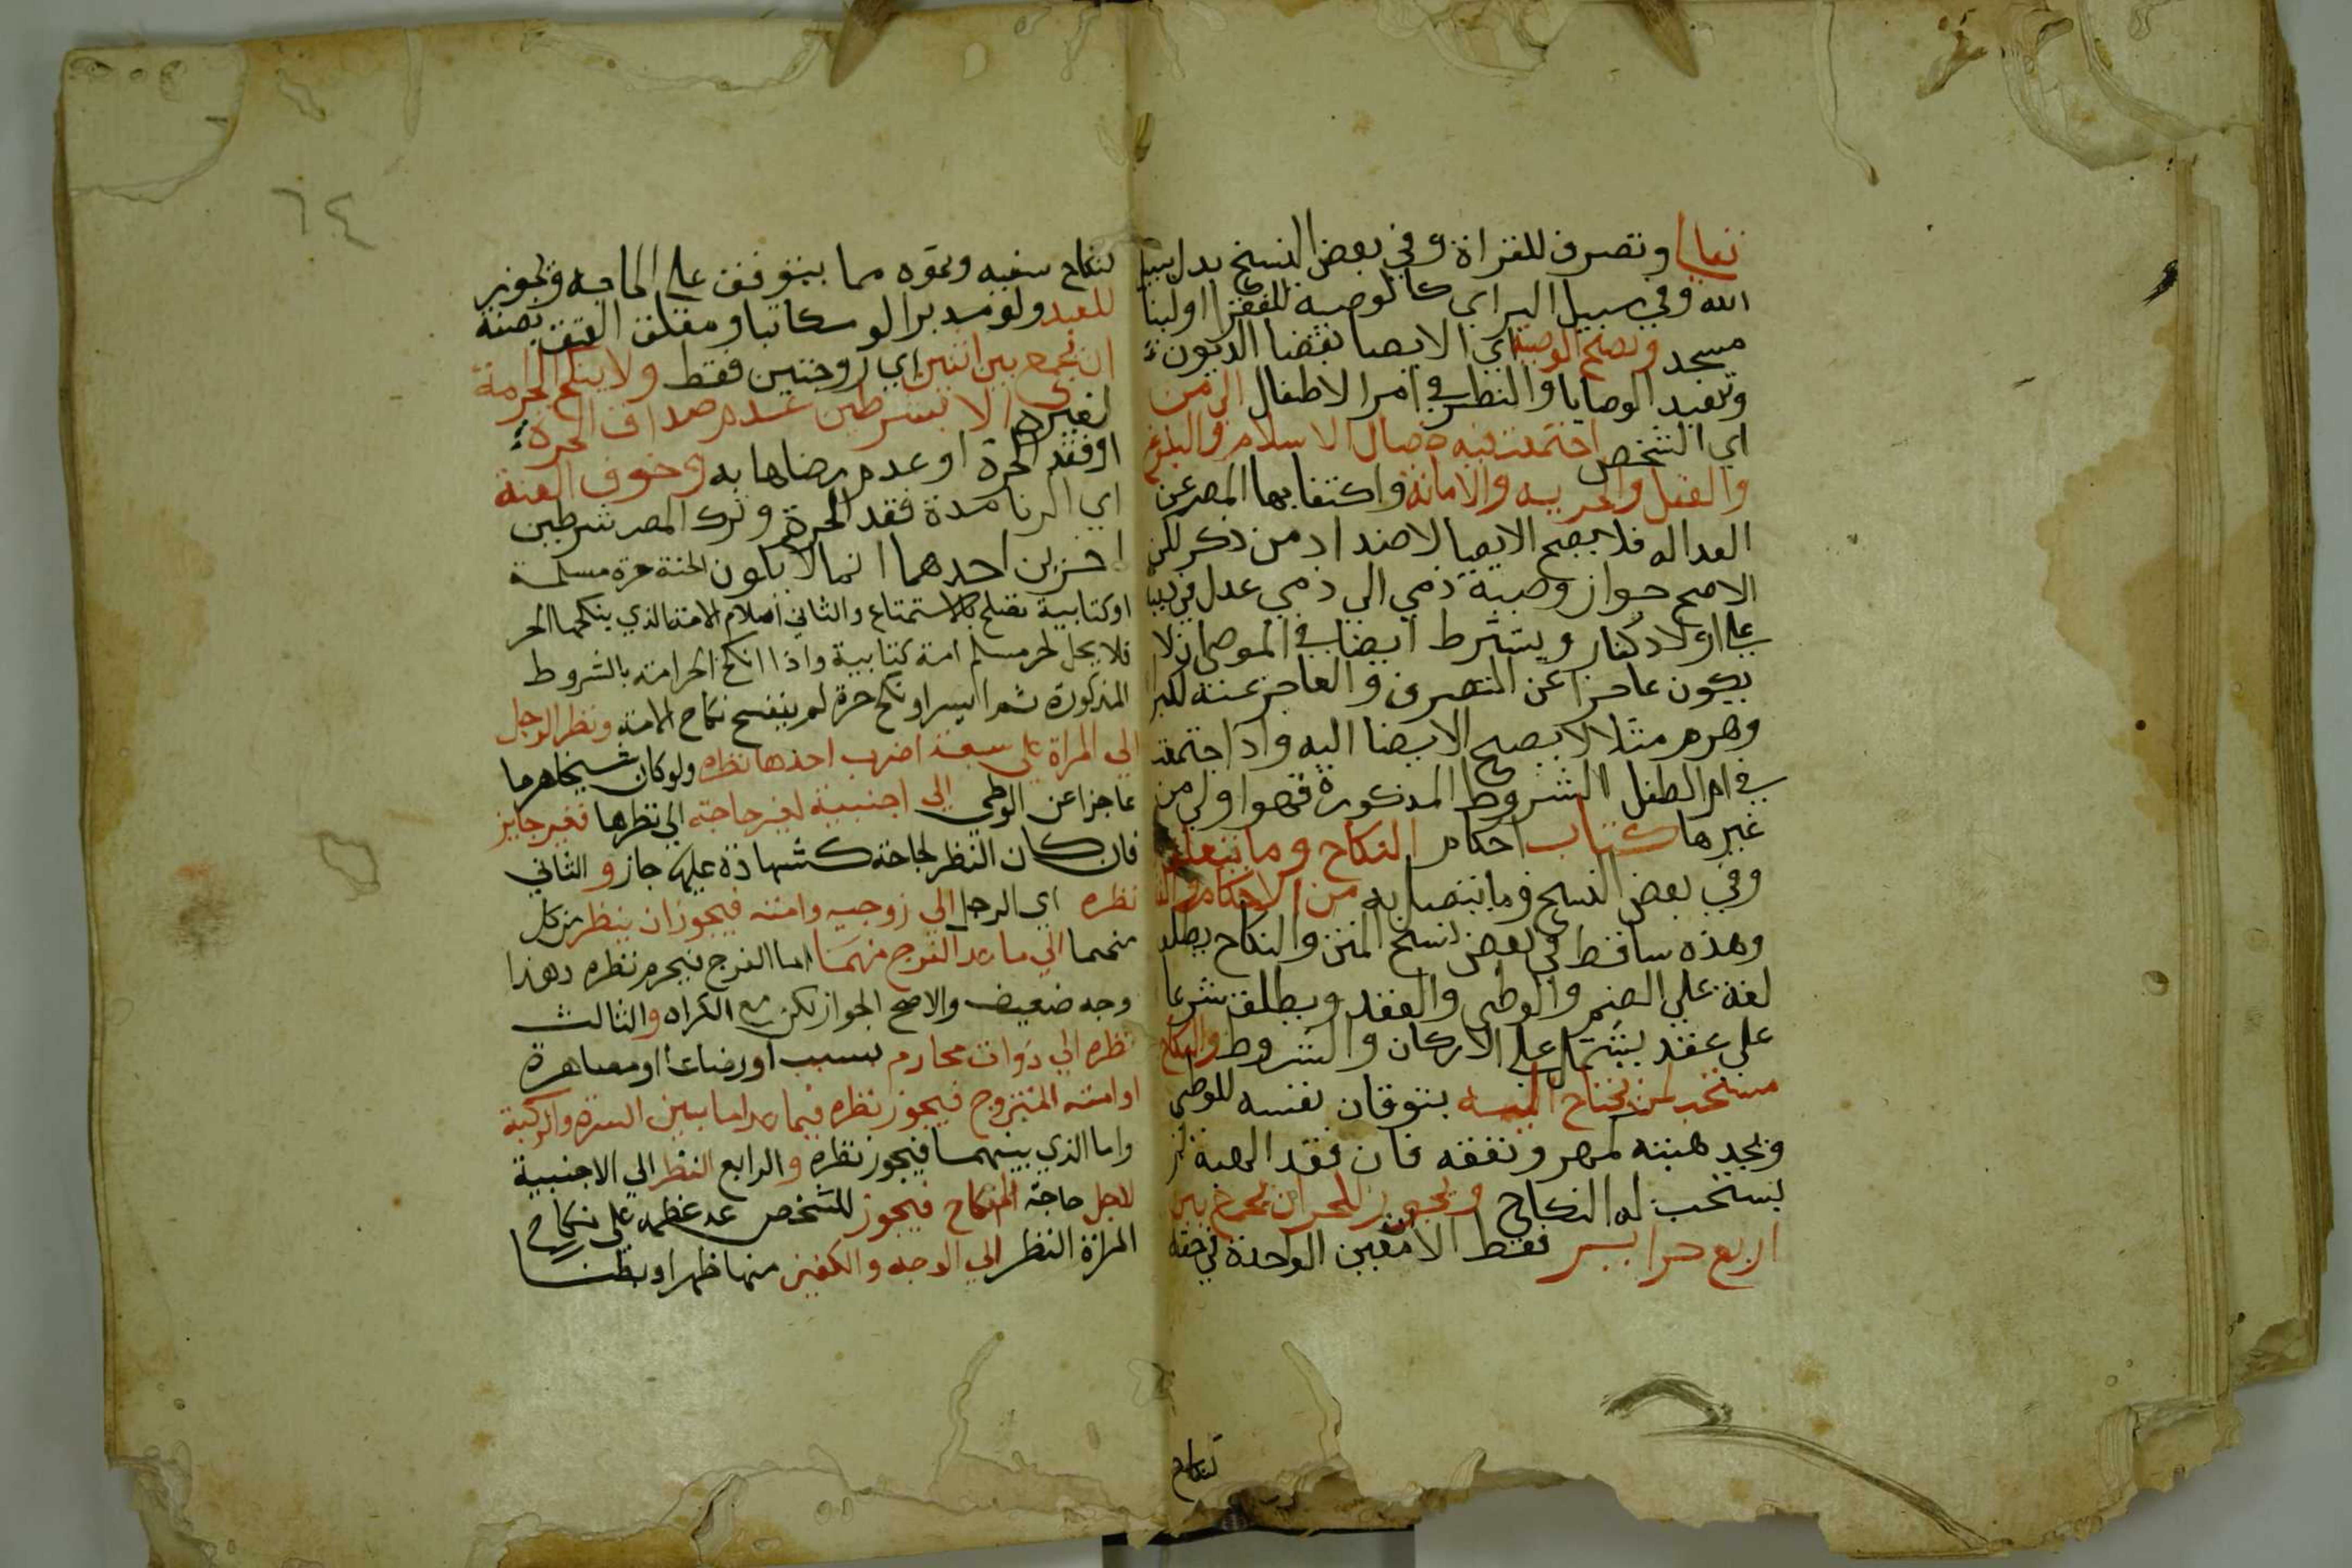 تعالى وتصرف للغزاة وفي بعض النسخ بدل سبيل
الله وفي سبيل البر اي كالوصية للفقرا او لبنا
مسجد وتصح الوصية اي الايصا بقضا الديون
وتنفيد الوصايا والنظر في امر الاطفال الى من
اي الشخص اجتمعت فيه خصال الاسلام والبلوغ
والعقل والحريه والامانة واكتفا بها المصر عن
العداله فلا يصح الايصا لاضداد من ذكر لكن
الاصح جواز وصية ذمي الي ذمي عدل في دينه
على اولاد كفار ويشترط ايضا في الموصى ان لا
يكون عاجزا عن التصرف والعاجز عنه لكبر
وهرم مثلا لا يصح الايصا اليه واذا اجتمعت
في ام الطفل الشروط المذكورة فهو اولى من
غيرها كتاب احكام النكاح وما يتعلق
وفي بعض النسخ وما يتصل به من الاحكام والقضا
وهذه ساقط في بعض نسخ المتن والنكاح يطلق
لغة على الضم والوطي والعقد ويطلق شرعا
على عقد يشتمل على الاركان والشروط والنكاح
مستحب لمن يحتاج اليه بتوقان نفسه للوطي
ويجد هبته لمهر ونفقه فان فقد الهبة لم
يستحب له النكاح ويجوز للحر ان يجمع بين
اربع حراير فقط الا تتعين الواحدة في حقه
كنكاح
كنكاح سفيه ونحوه مما يتوقف على الحاجه ويجوز
للعبد ولو مدبرا او مكاتبا او معلق العتق بصفة
ان يجمع بين اثنين اي زوجتين فقط ولا ينكح الحر امة
لغيره الا بشرطين عدم صداق الحرة
او فقد الحرة او عدم رضاها به وخوف العنة
اي الزنا مدة فقد الحرة وترك المصر شرطين
اخرين احدهما انما لا يكون تحته حرة مسلمة
او كتابية تصلح للاستمتاع والثاني اسلام الامة الذي ينكحها الحر
فلا يحل لحر مسلم امة كتابية واذا انكح الحر امته بالشروط
المذكورة ثم ايسر او نكح حرة لم ينفسخ نكاح الامة ونظر الرجل
الي المراة على سبعة اضرب احدها نظره ولو كان شيخا هرما
عاجزا عن الوطي الي اجنبية لغير حاجته الي نظرها فغير جايز
فان كان النظر لحاجة كشهادة عليه جاز والثاني
نظره اي الرجل الي زوجيه وامته فيجوز ان ينظر من كل
منهما الي ما عدا الفرج منهما اما الفرج فيحرم نظره وهذا
وجه ضعيف والاصح الجواز لكن مع الكراه والثالث
نظره الي ذوات محارم بنسب او رضاع او مصاهرة
او امته المتزوج فيجوز نظره فيما عدا ما بين السرة والركبة
واما الذي بينهما فيجوز نظره والرابع النظر الي الاجنبية
لاجل حاجة النكاح فيجوز للشخص عد عظمه على نكاح
المراة النظر الي الوجه والكفين منها ظهرا وبطنا
٦٤